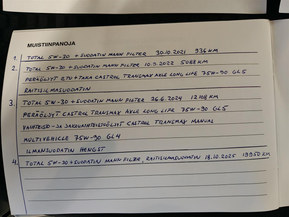 MUISTIINPANOJA
1. TOTAL 5W-30 + SUODATIN MANN FILTER 30.10.2021 936 KM
2. TOTAL 5W-30 + SUODATIN MANN FILTER 10.9.2022 5088 KM
PERÄÖLJYT CASTROL TRANSMAX AXLE LONG LIFE 75W-90 GL5
RAITISILMASUODATIN
3. TOTAL 5W-30 + SUODATIN MANN FILTER 26.6.2024 12108 KM
PERÄÖLJYT CASTROL TRANSMAX AXLE LONG LIFE 75W-90 GL5
VAIHTEISTO- JA CASTROL TRANSMAX MANUAL
MULTIVEHICLE 75W-90 GL4
ILMANSUODATIN HENGST
4. TOTAL 5W-30 + SUODATIN MANN FILTER, RAITISILMASUODATIN 18.10.2025 KM